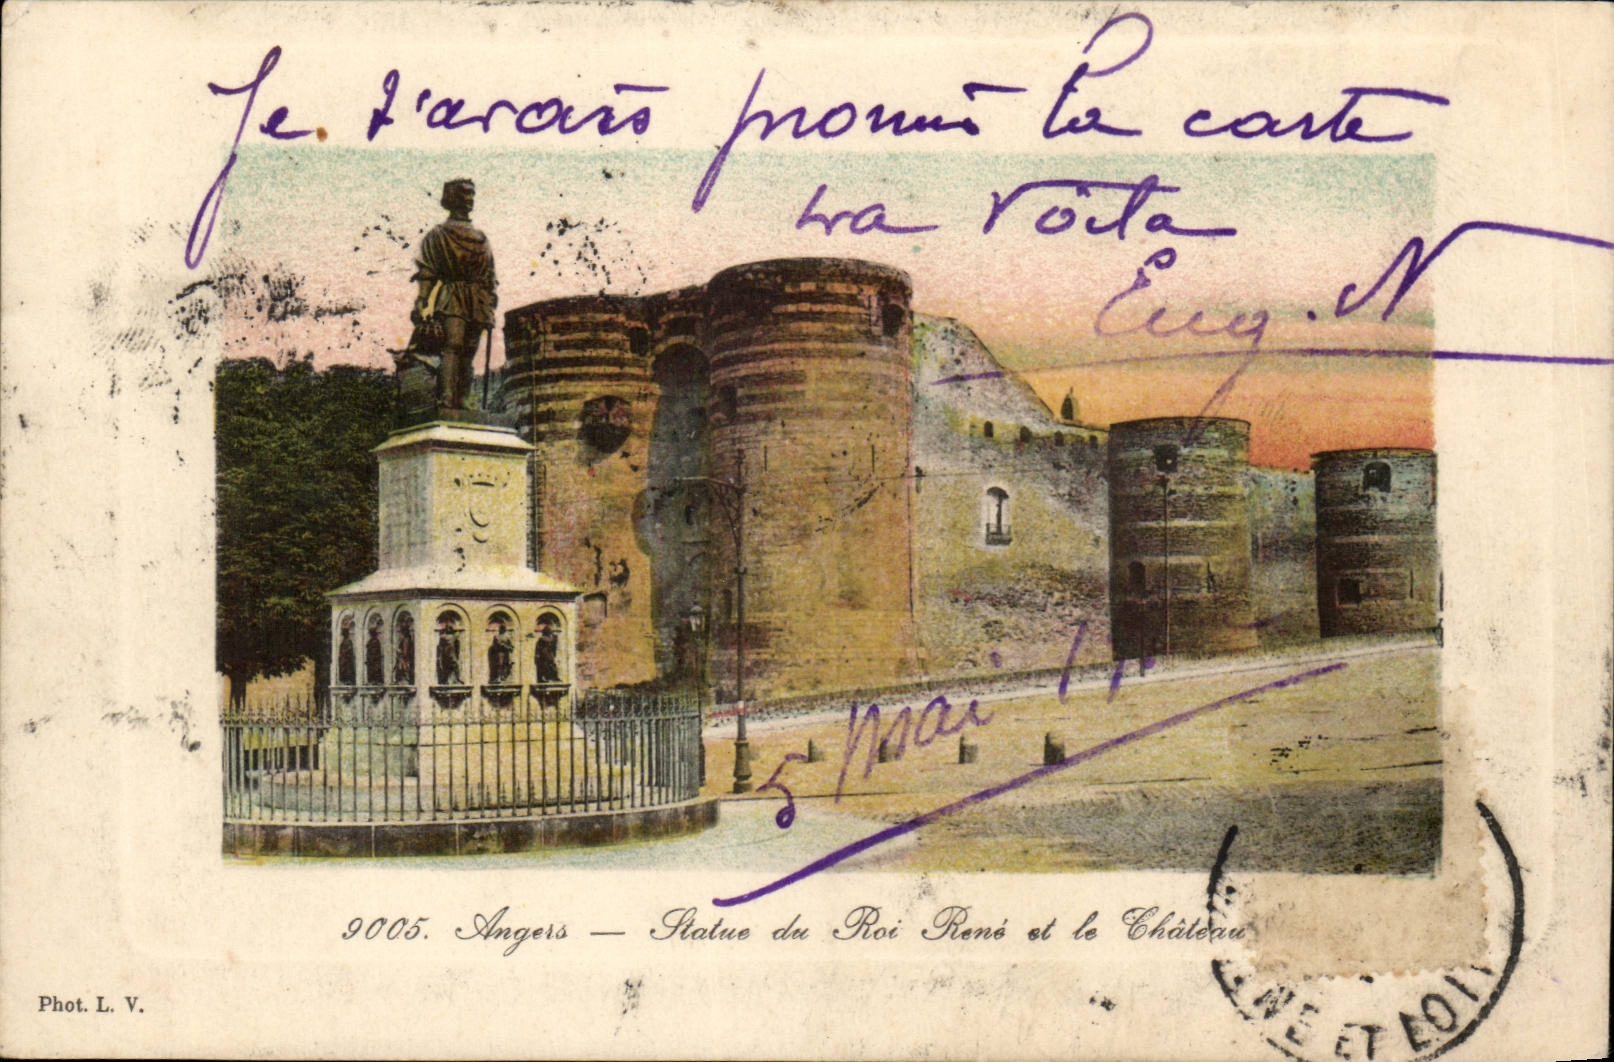 Je t'avais promis la carte
la voila
Eug. N
5 mai 11
9005. Angers — Statue du Roi René et le Château
Phot. L. V.
NE ET LOI